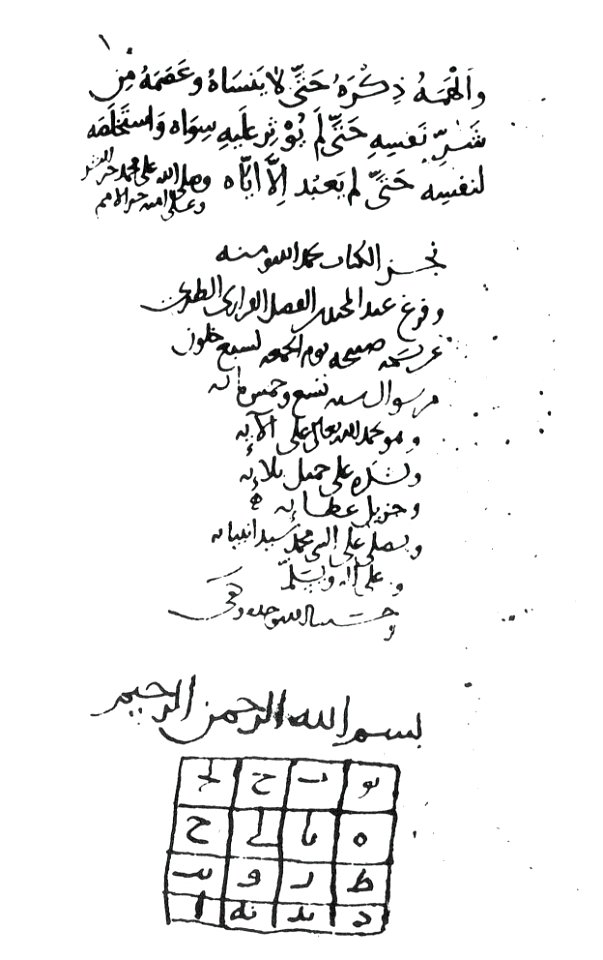 وَأَلْهَمَهُ ذِكْرَهُ حَتَّى لَا يَنسَاهُ وَعَصَمَهُ مِن
شَرِّ نَفْسِهِ حَتَّى لَم يُؤْثِر عَلَيهِ سِوَاه وَاسْتَخْلَصَه
لنفسِهِ حَتَّى لم يَعبُد إِلَّا ايَّاه وصلى الله على محمد خير البشر
وعلى امته خير الامم
نجز الكتاب بحمد الله ومنه
وفرغ عبد المجيد بن الفضل الفراري الطبري
عن نسخه صبيحه يوم الجمعه لسبع خلون
من شوال سنه تسع وخمس مائه
وهو يحمد الله تعالى على آلائه
ويشكره على جميل بلائه
وجزيل عطائه
ويصلى على النبي محمد سيد انبيائه
وعلى آله ويسلم
وحسبنا الله وحده وكفى
بسم الله الرحمن الرحيم
يو ب ج يج
ه يا ى ح
ط ز و يب
د يد يه ا